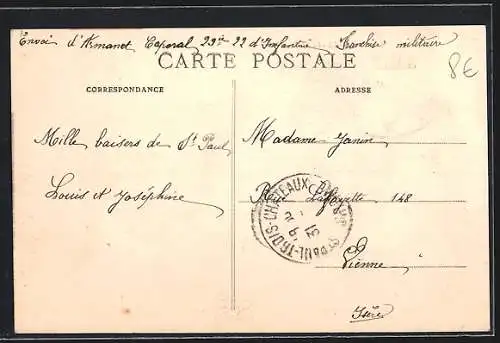 Envoi d'Armanet Caporal 23ie 22 d'Infantrie Franchise militaire
8€
CARTE POSTALE
CORRESPONDANCE
ADRESSE
Mille baisers de St Paul
Louis et Joséphine
Madame Janin
Rue Lafayette 148
Vienne
Isère
ST PAUL-TROIS-CHATEAUX